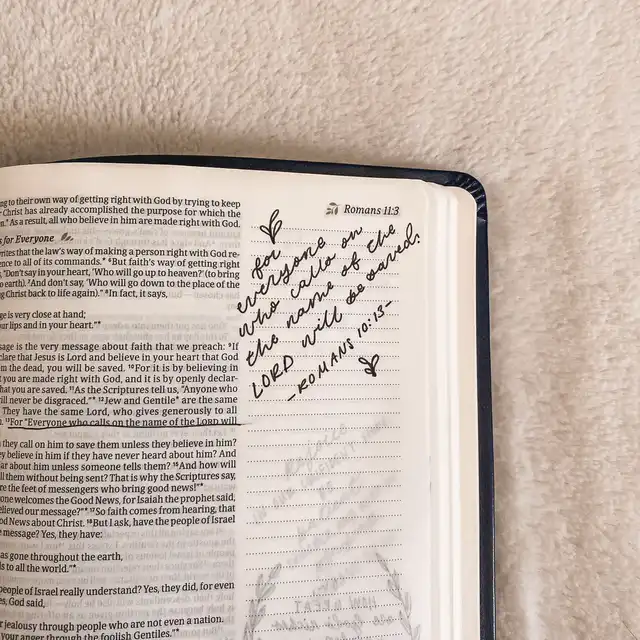 ng to their own way of getting right with God by trying to keep
Christ has already accomplished the purpose for which the
" As a result, all who believe in him are made right with God.
s for Everyone
rites that the law's way of making a person right with God re-
ence to all of its commands.* ⁶But faith's way of getting right
, "Don't say in your heart, 'Who will go up to heaven?' (to bring
o earth). ⁷And don't say, 'Who will go down to the place of the
g Christ back to life again)." ⁸In fact, it says,
ge is very close at hand;
ur lips and in your heart."*
sage is the very message about faith that we preach: ⁹If
clare that Jesus is Lord and believe in your heart that God
m the dead, you will be saved. ¹⁰For it is by believing in
t you are made right with God, and it is by openly declar-
hat you are saved. ¹¹As the Scriptures tell us, "Anyone who
will never be disgraced."* ¹²Jew and Gentile* are the same
They have the same Lord, who gives generously to all
¹³For "Everyone who calls on the name of the LORD will
they call on him to save them unless they believe in him?
y believe in him if they have never heard about him? And
ar about him unless someone tells them? ¹⁵And how will
ll them without being sent? That is why the Scriptures say,
re the feet of messengers who bring good news!"*
one welcomes the Good News, for Isaiah the prophet said,
elieved our message?"* ¹⁷So faith comes from hearing, that
d News about Christ. ¹⁸But I ask, have the people of Israel
message? Yes, they have:
as gone throughout the earth,
s to all the world."*
people of Israel really understand? Yes, they did, for even
es, God said,
r jealousy through people who are not even a nation.
your anger through the foolish Gentiles."*
Romans 11:3
for
everyone
who calls on
the name of the
LORD will be saved.
-ROMANS 10:13-